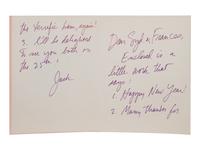 Dear Syd & Frances,
Enclosed is a
little work that
says:
1. Happy New Year!
2. Many thanks for
the terrific ham, again!
3. I'll be delighted
to see you both on
the 25th!
Jack